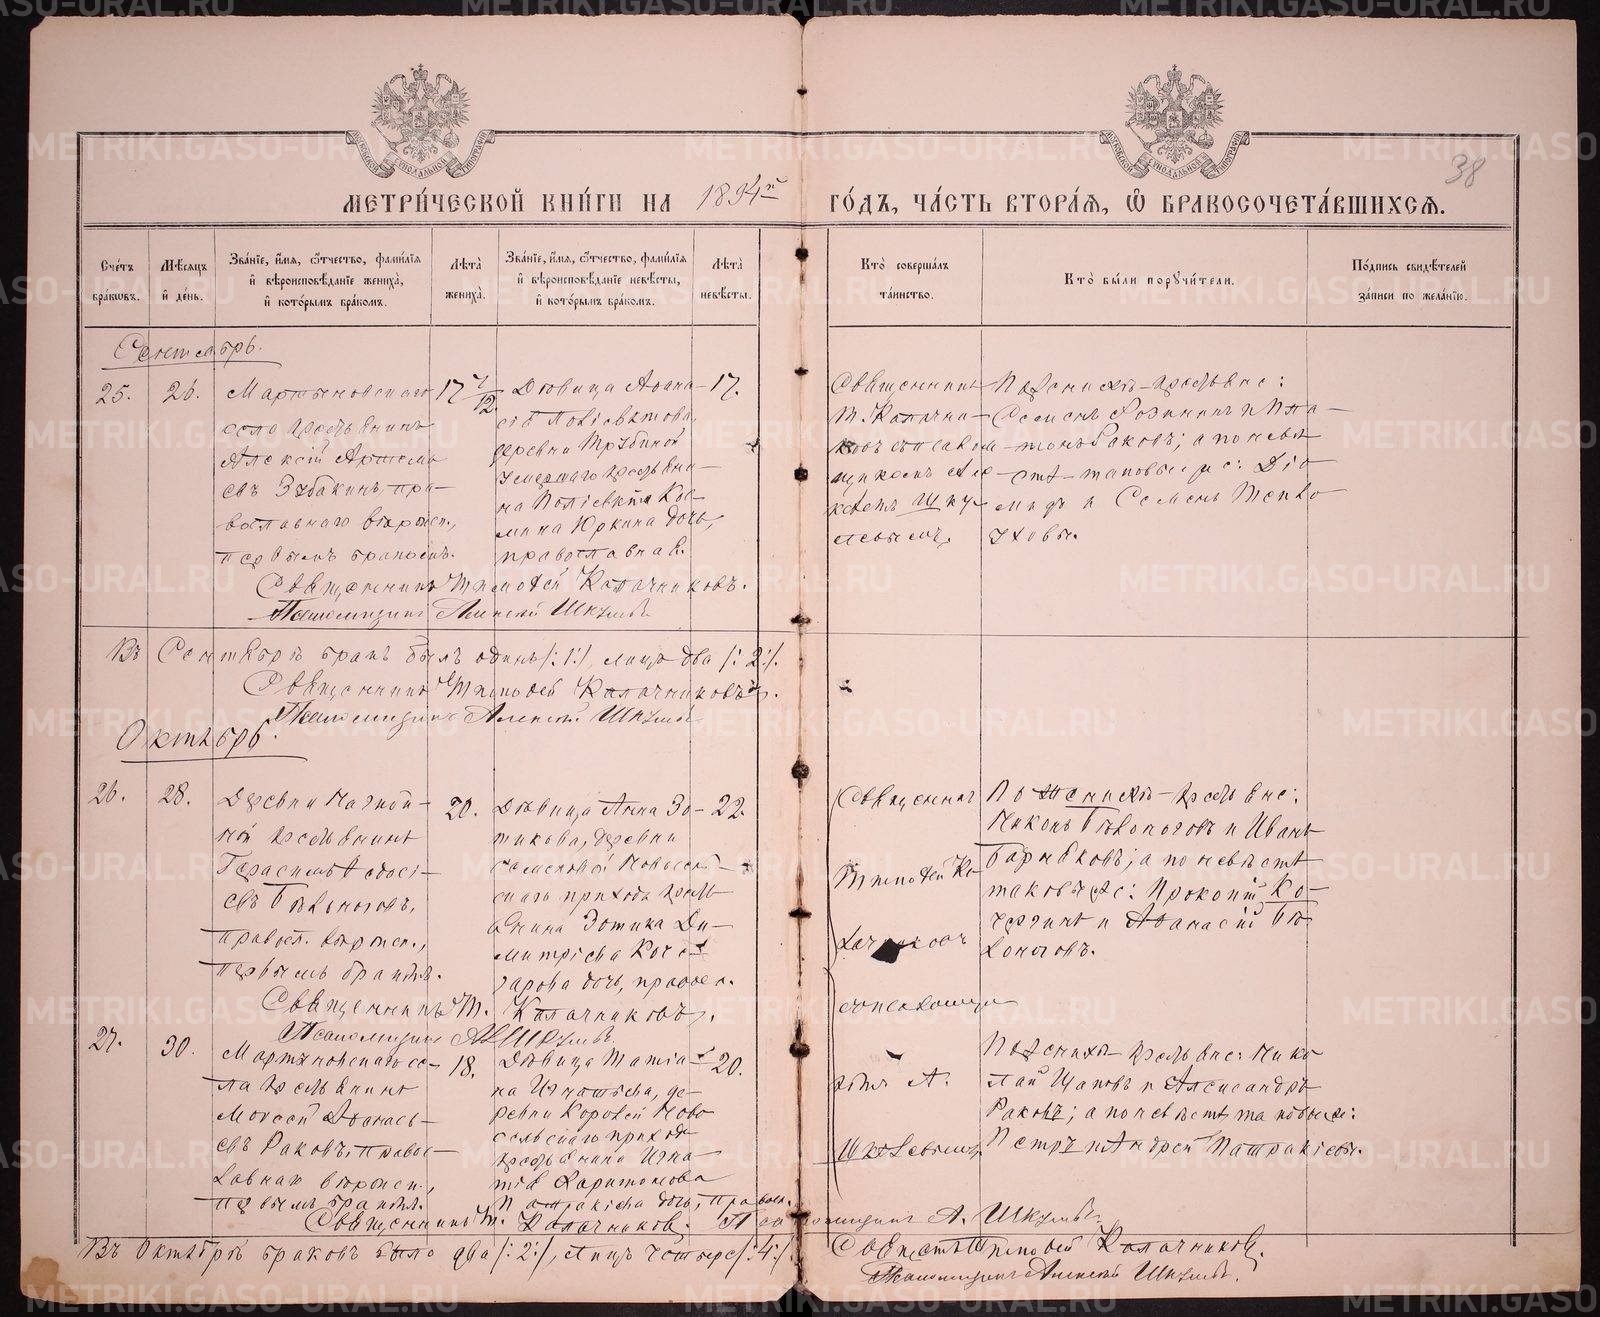 МЕТРИ́ЧЕСКОЙ КНИ́ГИ НА 1894й ГО́ДЪ, ЧА́СТЬ ВТОРА́Я, Ѽ БРАКОСОЧЕТА́ВШИХСЯ.
38
Сче́тъ бра́кѡвъ.
Мѣ́сяцъ и҆ де́нь.
Зва́нїе, и҆́мя, ѻ҆́тчество, фами́лїя и҆ вѣроисповѣ́данїе жениха̀, и҆ кото́рымъ бра́комъ.
Лѣ́та̀ жениха̀.
Зва́нїе, и҆́мя, ѻ҆́тчество, фами́лїя и҆ вѣроисповѣ́данїе невѣ́сты, и҆ кото́рымъ бра́комъ.
Лѣ́та̀ невѣ́сты.
Кто̀ соверша́лъ та́инство.
Кто̀ бы́ли порꙋчи́тели.
По́дпись свидѣ́телей за́писи по жела́нїю.
Сентябрь.
25.
26.
Мартыновскаго
села крестьянинъ
Алексій Артемо
евъ Зубакинъ, пра-
вославнаго вѣроисп.,
первымъ бракомъ.
17
Дѣвица Аѳана-
сія Поліевктова,
деревни Трубиной
умершаго крестьяни-
на Поліевкта Кос-
мина Юркина дочь,
православная.
17.
Священникъ
Т. Калачни-
ковъ съ псалом-
щикомъ Але
ксѣемъ Шку-
левымъ.
По женихѣ крестьяне:
Семенъ и Пла-
тонъ Раковъ; а по невѣ
стѣ таковые же: Діо
мидъ и Семенъ
Священникъ Тимоѳей Калачниковъ.
Псаломщикъ Алексѣй Шкулевъ
Въ Сентябрѣ бракъ былъ одинъ /:1:/, лицъ два /:2:/.
Священникъ Тимоѳей Калачниковъ.
Псаломщикъ Алексѣй Шкулевъ
Октябрь.
26.
28.
Деревни
крестьянинъ
Герасимъ Ѳедось-
евъ Бѣлоноговъ,
правосл. вѣроисп.,
первымъ бракомъ.
20.
Дѣвица Анна Зо-
тикова, деревни
Новосель-
скаго прихода кресть
янина Зотика Ди-
митріева Коче-
гарова дочь, правосл.
22.
Священникъ
Тимоѳей Ка-
лачниковъ
съ псаломщи
По женихѣ крестьяне:
Никонъ Бѣлоноговъ и Иванъ
а по невѣстѣ
таковые же: Прокопій Ко-
и Аѳанасій Бѣ-
лоноговъ.
Священникъ Т. Калачниковъ.
Псаломщикъ А. Шкулевъ.
27.
30.
Мартыновскаго се-
ла крестьянинъ
Моисей Аѳанась-
евъ Раковъ, правос-
лавнаго вѣроисп.,
первымъ бракомъ.
18.
Дѣвица Татіа-
на Игнатіева, де-
ревни Коровей Ново
сельскаго прихода
крестьянина Игна-
тія Харитонова
Патракіева дочь, правосл.
20.
комъ А.
Шкулевымъ.
По женихѣ крестьяне: Нико
лай Щаповъ и Александръ
Раковъ; а по невѣстѣ таковые же:
Петръ и Андрей Патракіевы.
Священникъ Т. Калачниковъ. Псаломщикъ А. Шкулевъ.
Въ Октябрѣ браковъ было два /:2:/, лицъ четыре /:4:/.
Священникъ Тимоѳей Калачниковъ.
Псаломщикъ Алексѣй Шкулевъ.
METRIKI.GASO-URAL.RU